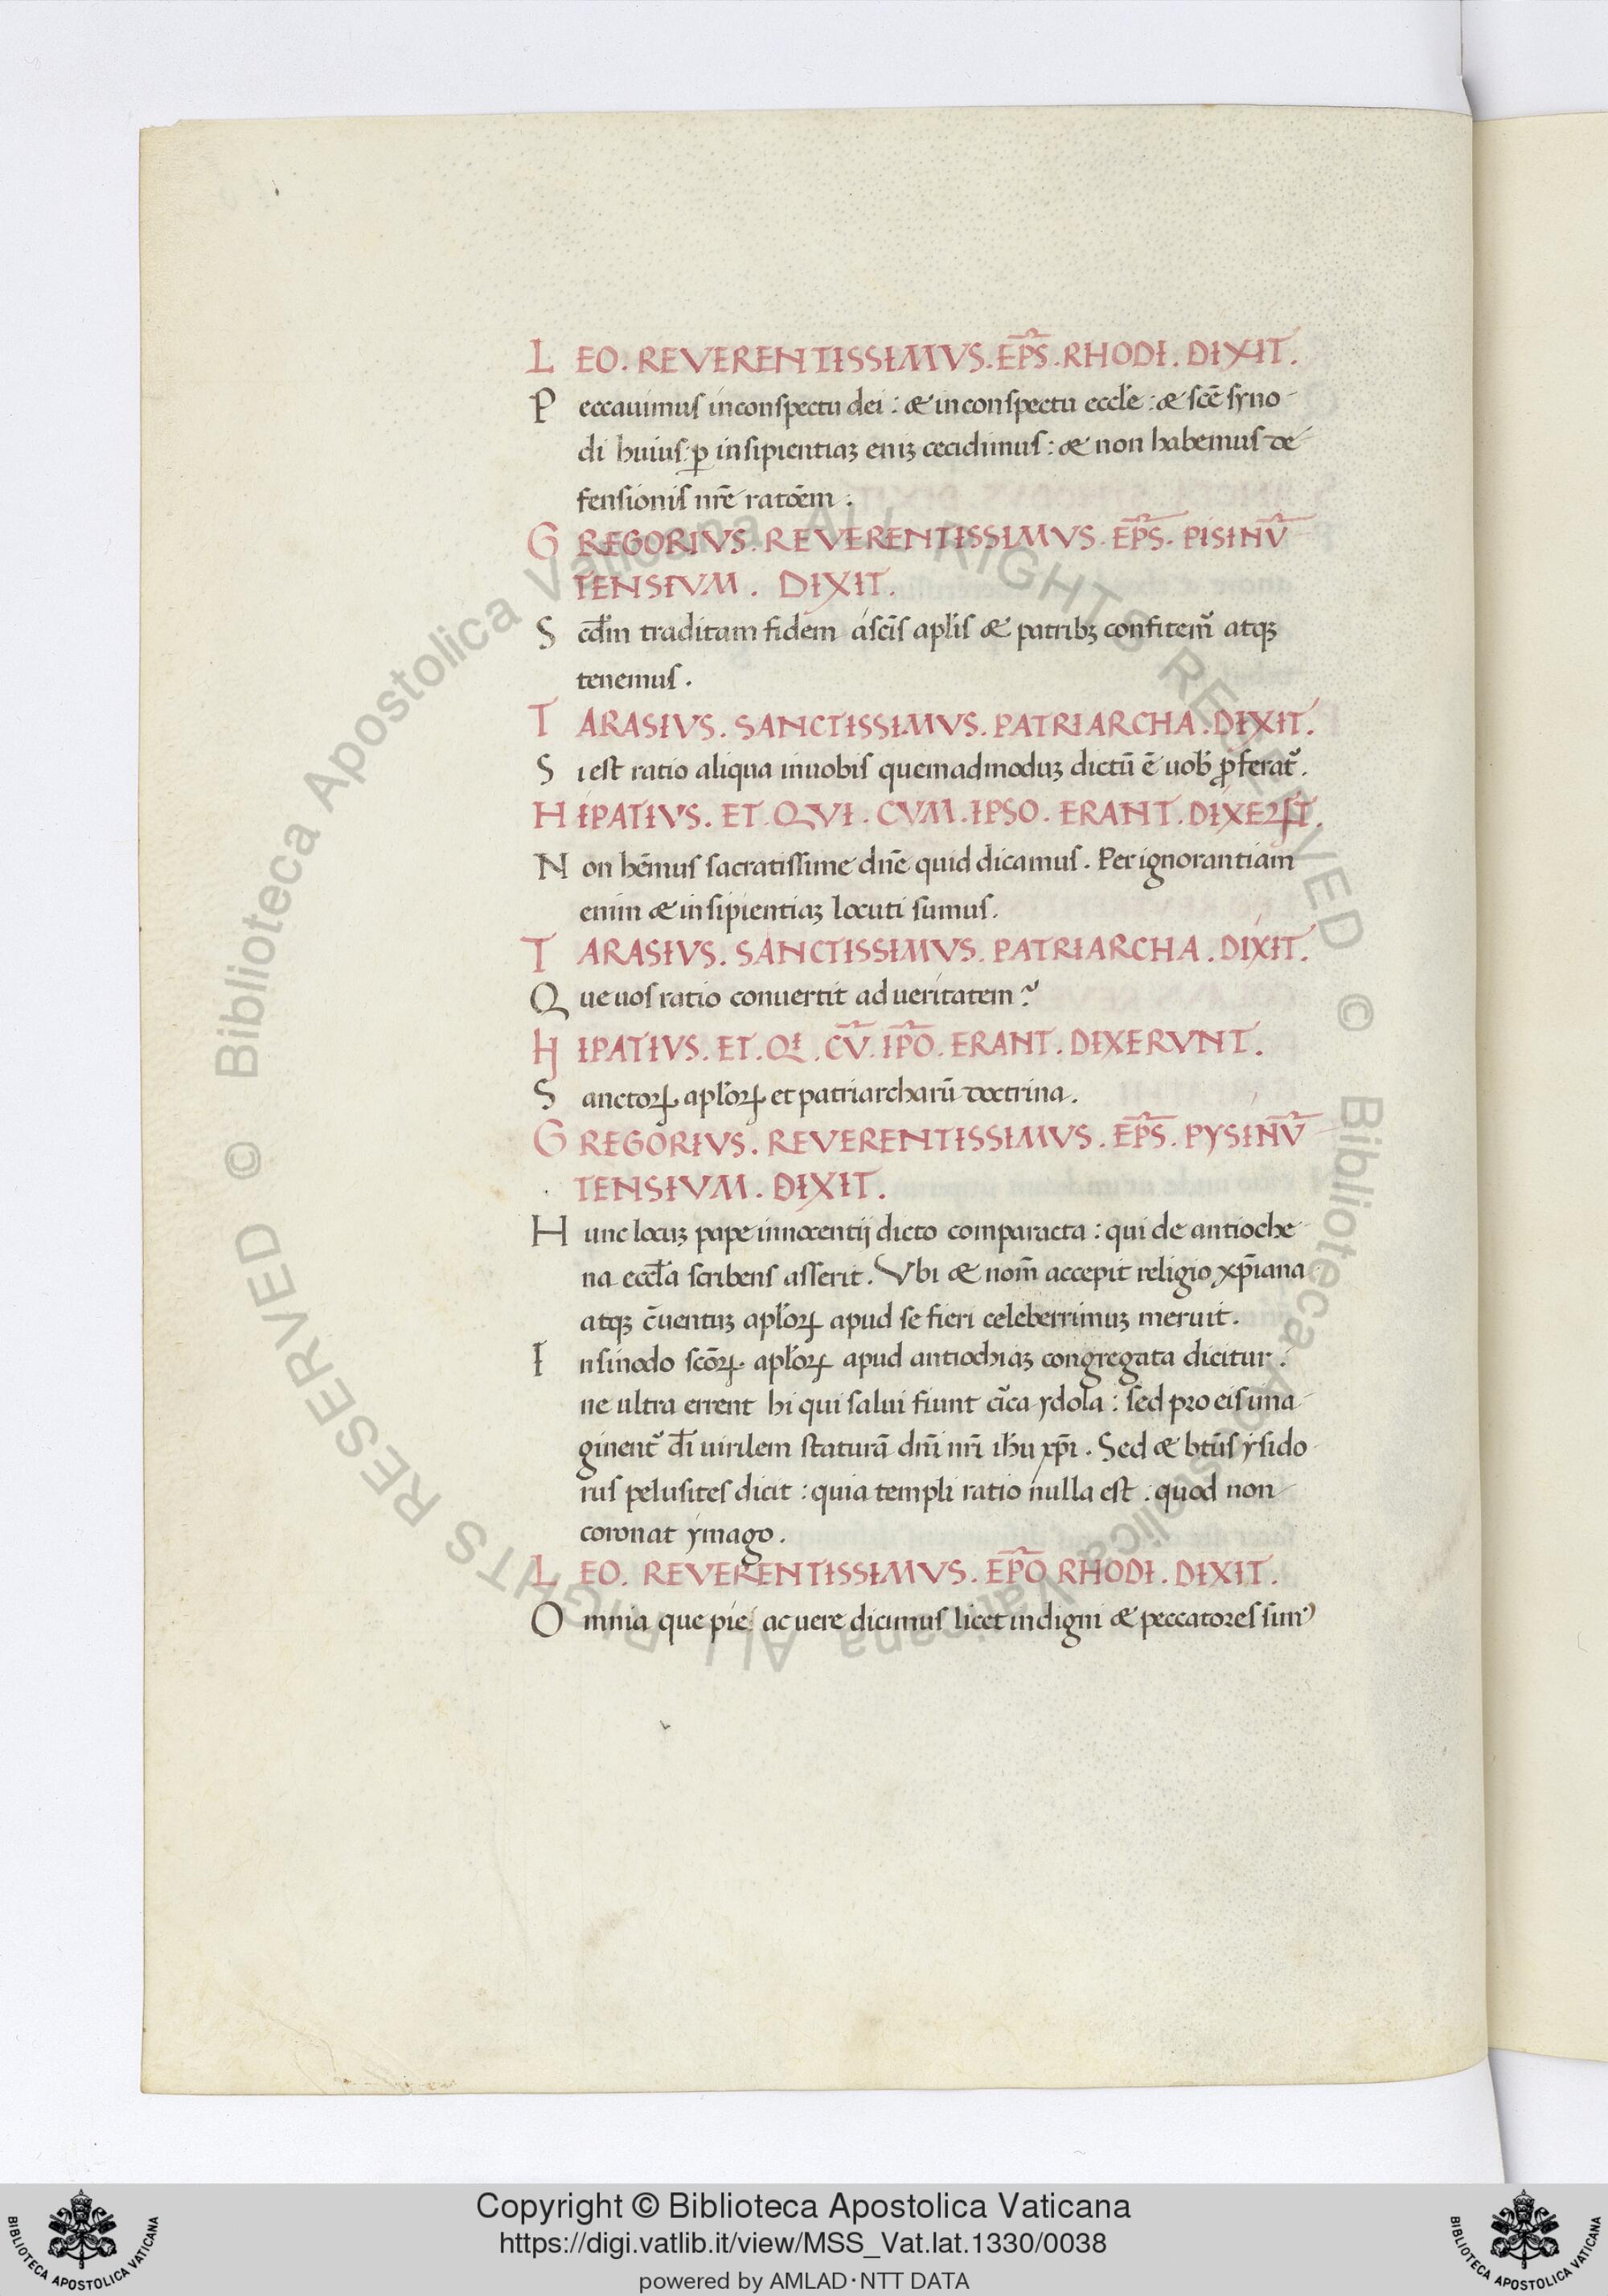 LEO. REVERENTISSIMVS. EP̄S. RHODI. DIXIT.
Peccauimus inconspectu dei : & inconspectu eccłe : & scē syno
di huius : ꝑ insipientiaꝫ eniꝫ cecidimus : & non habemus de
fensionis nrē ratōem :
GREGORIVS. REVERENTISSIMVS. EP̄S. PISINV̄
TENSIVM. DIXIT.
Scd̄m traditam fidem ascīs apłis & patribꝫ confitem᷑ atqꝫ
tenemus.
TARASIVS. SANCTISSIMVS. PATRIARCHA. DIXIT.
Si est ratio aliqua inuobis quemadmoduꝫ dictū ē uob̄ ꝓferat᷑.
HIPATIVS. ET. QVI. CVM. IPSO. ERANT. DIXERꝭT.
Non hēmus sacratissime dnē quid dicamus. Per ignorantiam
enim & insipientiaꝫ locuti sumus.
TARASIVS. SANCTISSIMVS. PATRIARCHA. DIXIT.
Que uos ratio conuertit ad ueritatem?
HIPATIVS. ET. QI. CV̄. IP̄O. ERANT. DIXERVNT.
Sanctoꝝ apłoꝝ et patriarcharū doctrina.
GREGORIVS. REVERENTISSIMVS. EP̄S. PYSINV̄
TENSIVM. DIXIT.
Hunc locuꝫ pape innocentij dicto comparacta : qui de antioche
na eccła scribens asserit. Vbi & nom̄ accepit religio xp̄iana
atqꝫ c̄uentuꝫ apłoꝝ apud se fieri celeberrimuꝫ meruit.
Insinodo scōꝝ apłoꝝ apud antiochiaꝫ congregata dicitur :
ne ultra errent hi qui salui fiunt cir̄ca ydola : sed pro eis ima
ginent᷑ dī uirilem staturā dnī nrī ihū xp̄i. Sed & btūs ysido
rus pelusites dicit : quia templi ratio nulla est : quod non
coronat ymago.
LEO. REVERENTISSIMVS. EP̄O RHODI. DIXIT.
Omnia que pie ac uere dicimus licet indigni & peccatores simꝰ
© Biblioteca Apostolica Vaticana ALL RIGHTS RESERVED
© Biblioteca Apostolica Vaticana ALL RIGHTS RESERVED
Copyright © Biblioteca Apostolica Vaticana
https://digi.vatlib.it/view/MSS_Vat.lat.1330/0038
powered by AMLAD·NTT DATA
BIBLIOTECA APOSTOLICA VATICANA
BIBLIOTECA APOSTOLICA VATICANA